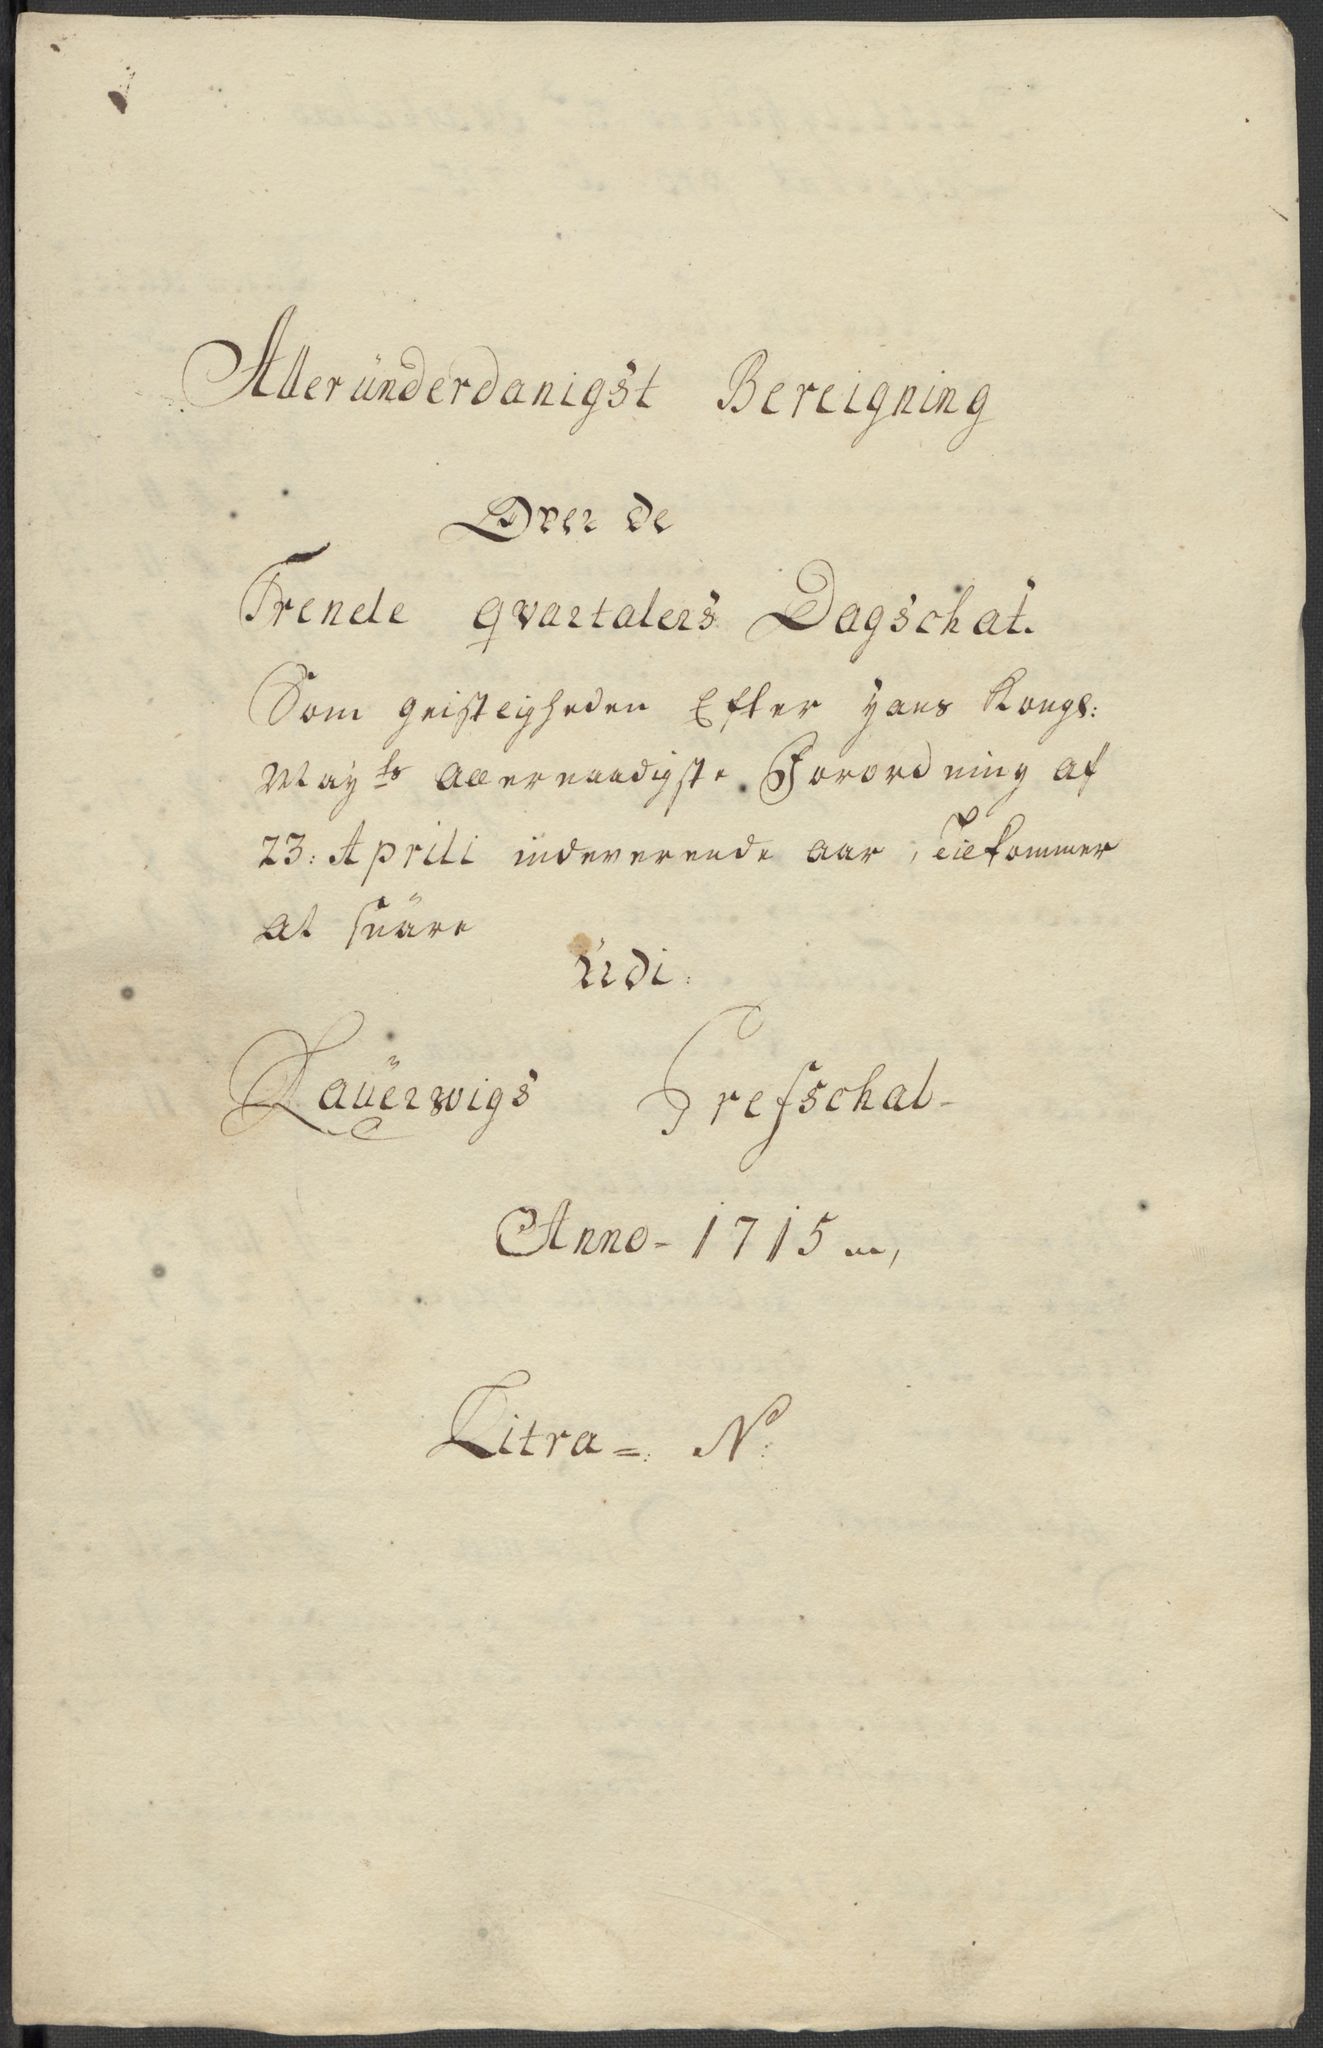 Alleründerdanigst Bereigning
Over de
Trende qvartalers Dagschat.
Som geistligheden Efter Hans Kongl:
May:ts allernaadigste Forordning af
23: Aprili indeverende aar, Tilkommer
at suare
Udi
Laüerwigs Grefschab
Anno - 1715
Litra =: No: